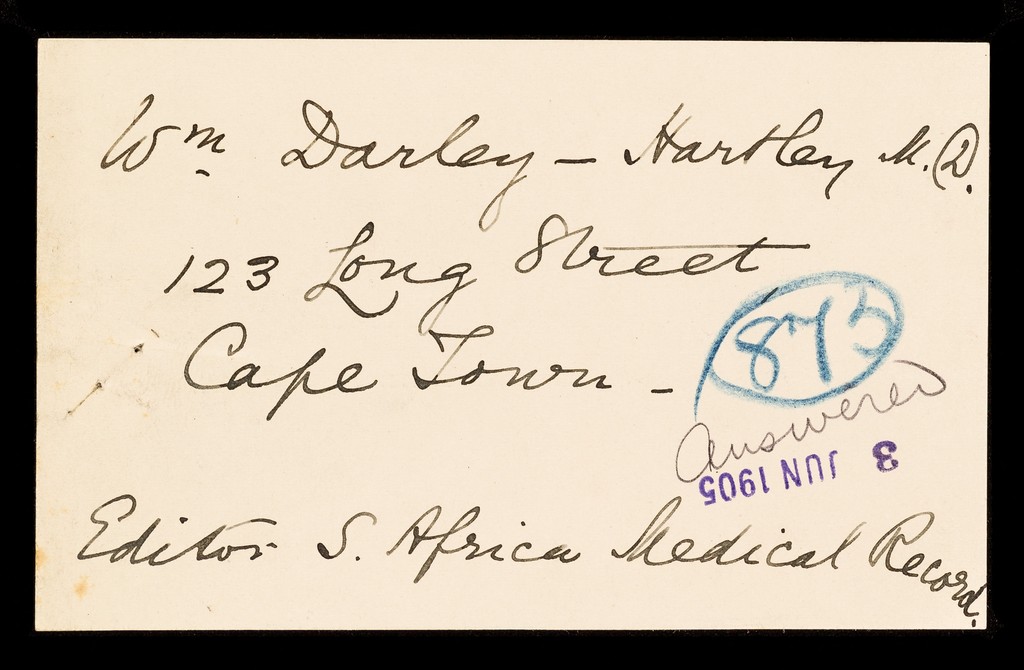 Wm Darley - Hartley M.D.
123 Long Street,
Cape Town -
875
Answered
3 JUN 1905
Editor S. Africa Medical Record.